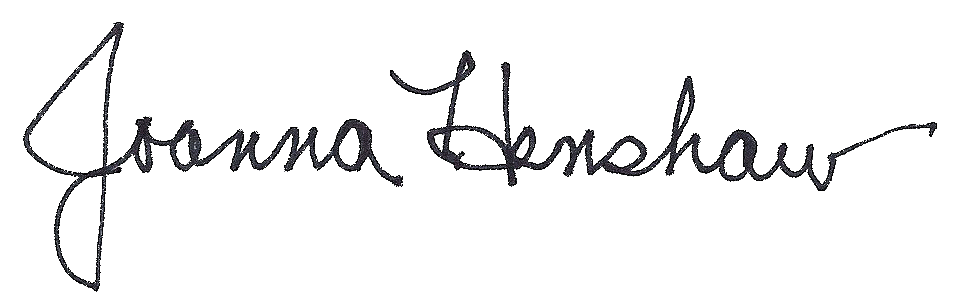 Joanna Henshaw